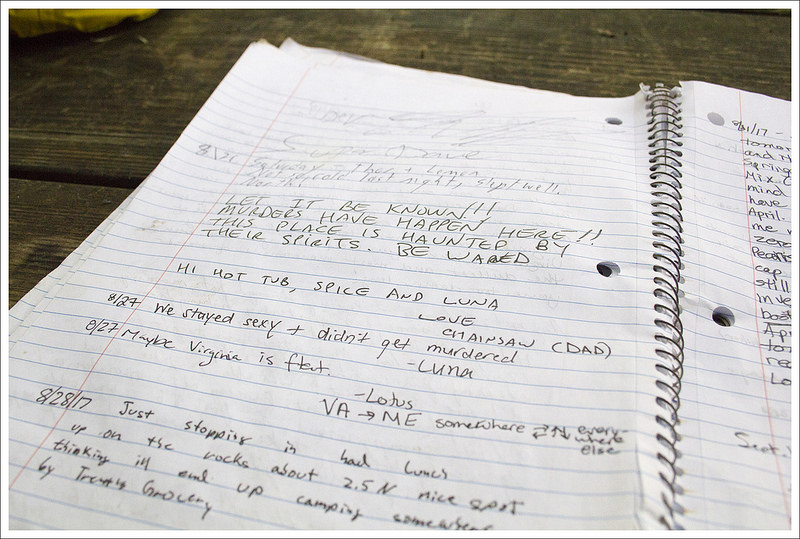 8/21
last night, slept well.
LET IT BE KNOWN!!
MURDERS HAVE HAPPEN HERE!!
THIS PLACE IS HAUNTED BY
THEIR SPIRITS. BE WARED
HI HOT TUB, SPICE AND LUNA
LOVE
CHAINSAW (DAD)
8/27 We stayed sexy + didn't get murdered
-LUNA
8/27 Maybe Virginia is flat.
-Lotus
VA → ME somewhere every-
where
else
8/28/17 Just stopping in had lunch
up on the rocks about 2.5 N nice spot
thinking ill end up camping somewhere
by Trents Grocery
8/31/17 -
tomor
and M
Spring
Mix C
mind
have
April.
me w
zero
cap
still
inve
bost
Apr
to
rea
Lo
Sept.